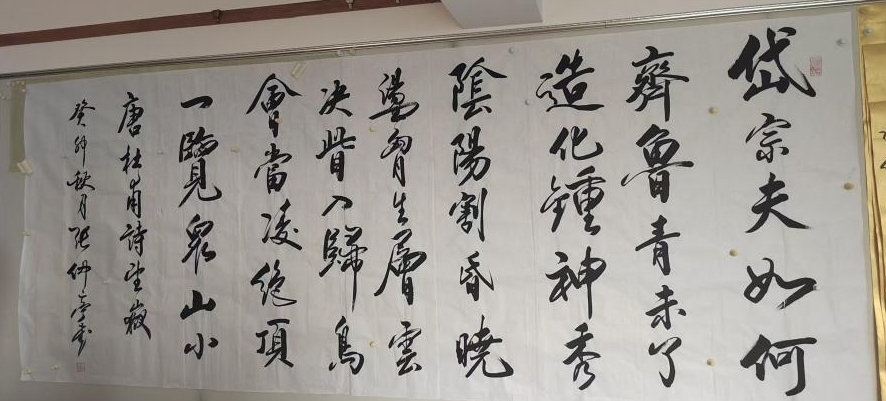 岱宗夫如何
齊魯青未了
造化鍾神秀
陰陽割昏曉
盪胷生層雲
決眥入歸鳥
會當凌絶頂
一覽衆山小
唐杜甫詩望嶽
癸卯秋月張仲亭書